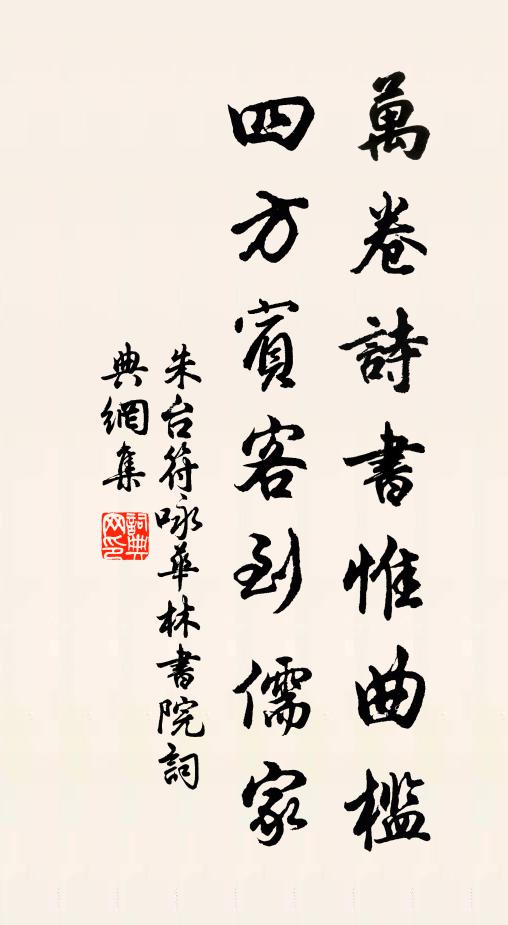 萬卷詩書惟曲檻
四方賓客到儒家
朱台符咏華林書院詞
典網集
詞典網印